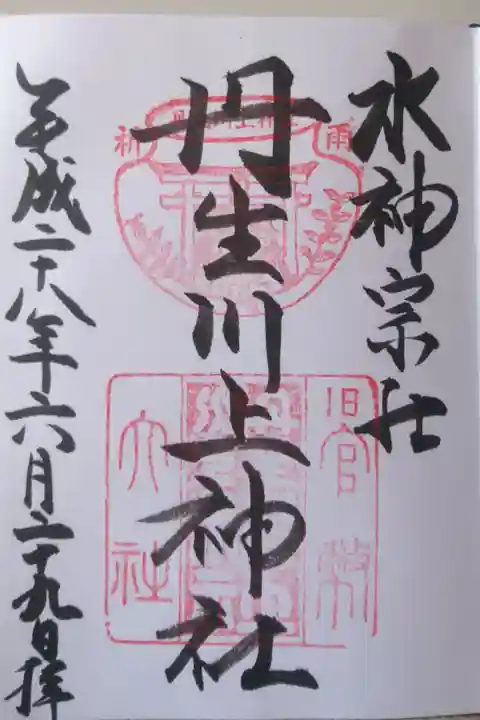 水神宗社
丹生川上神社
平成二十八年六月二十九日拝
雨
祈
旧官幣
大社